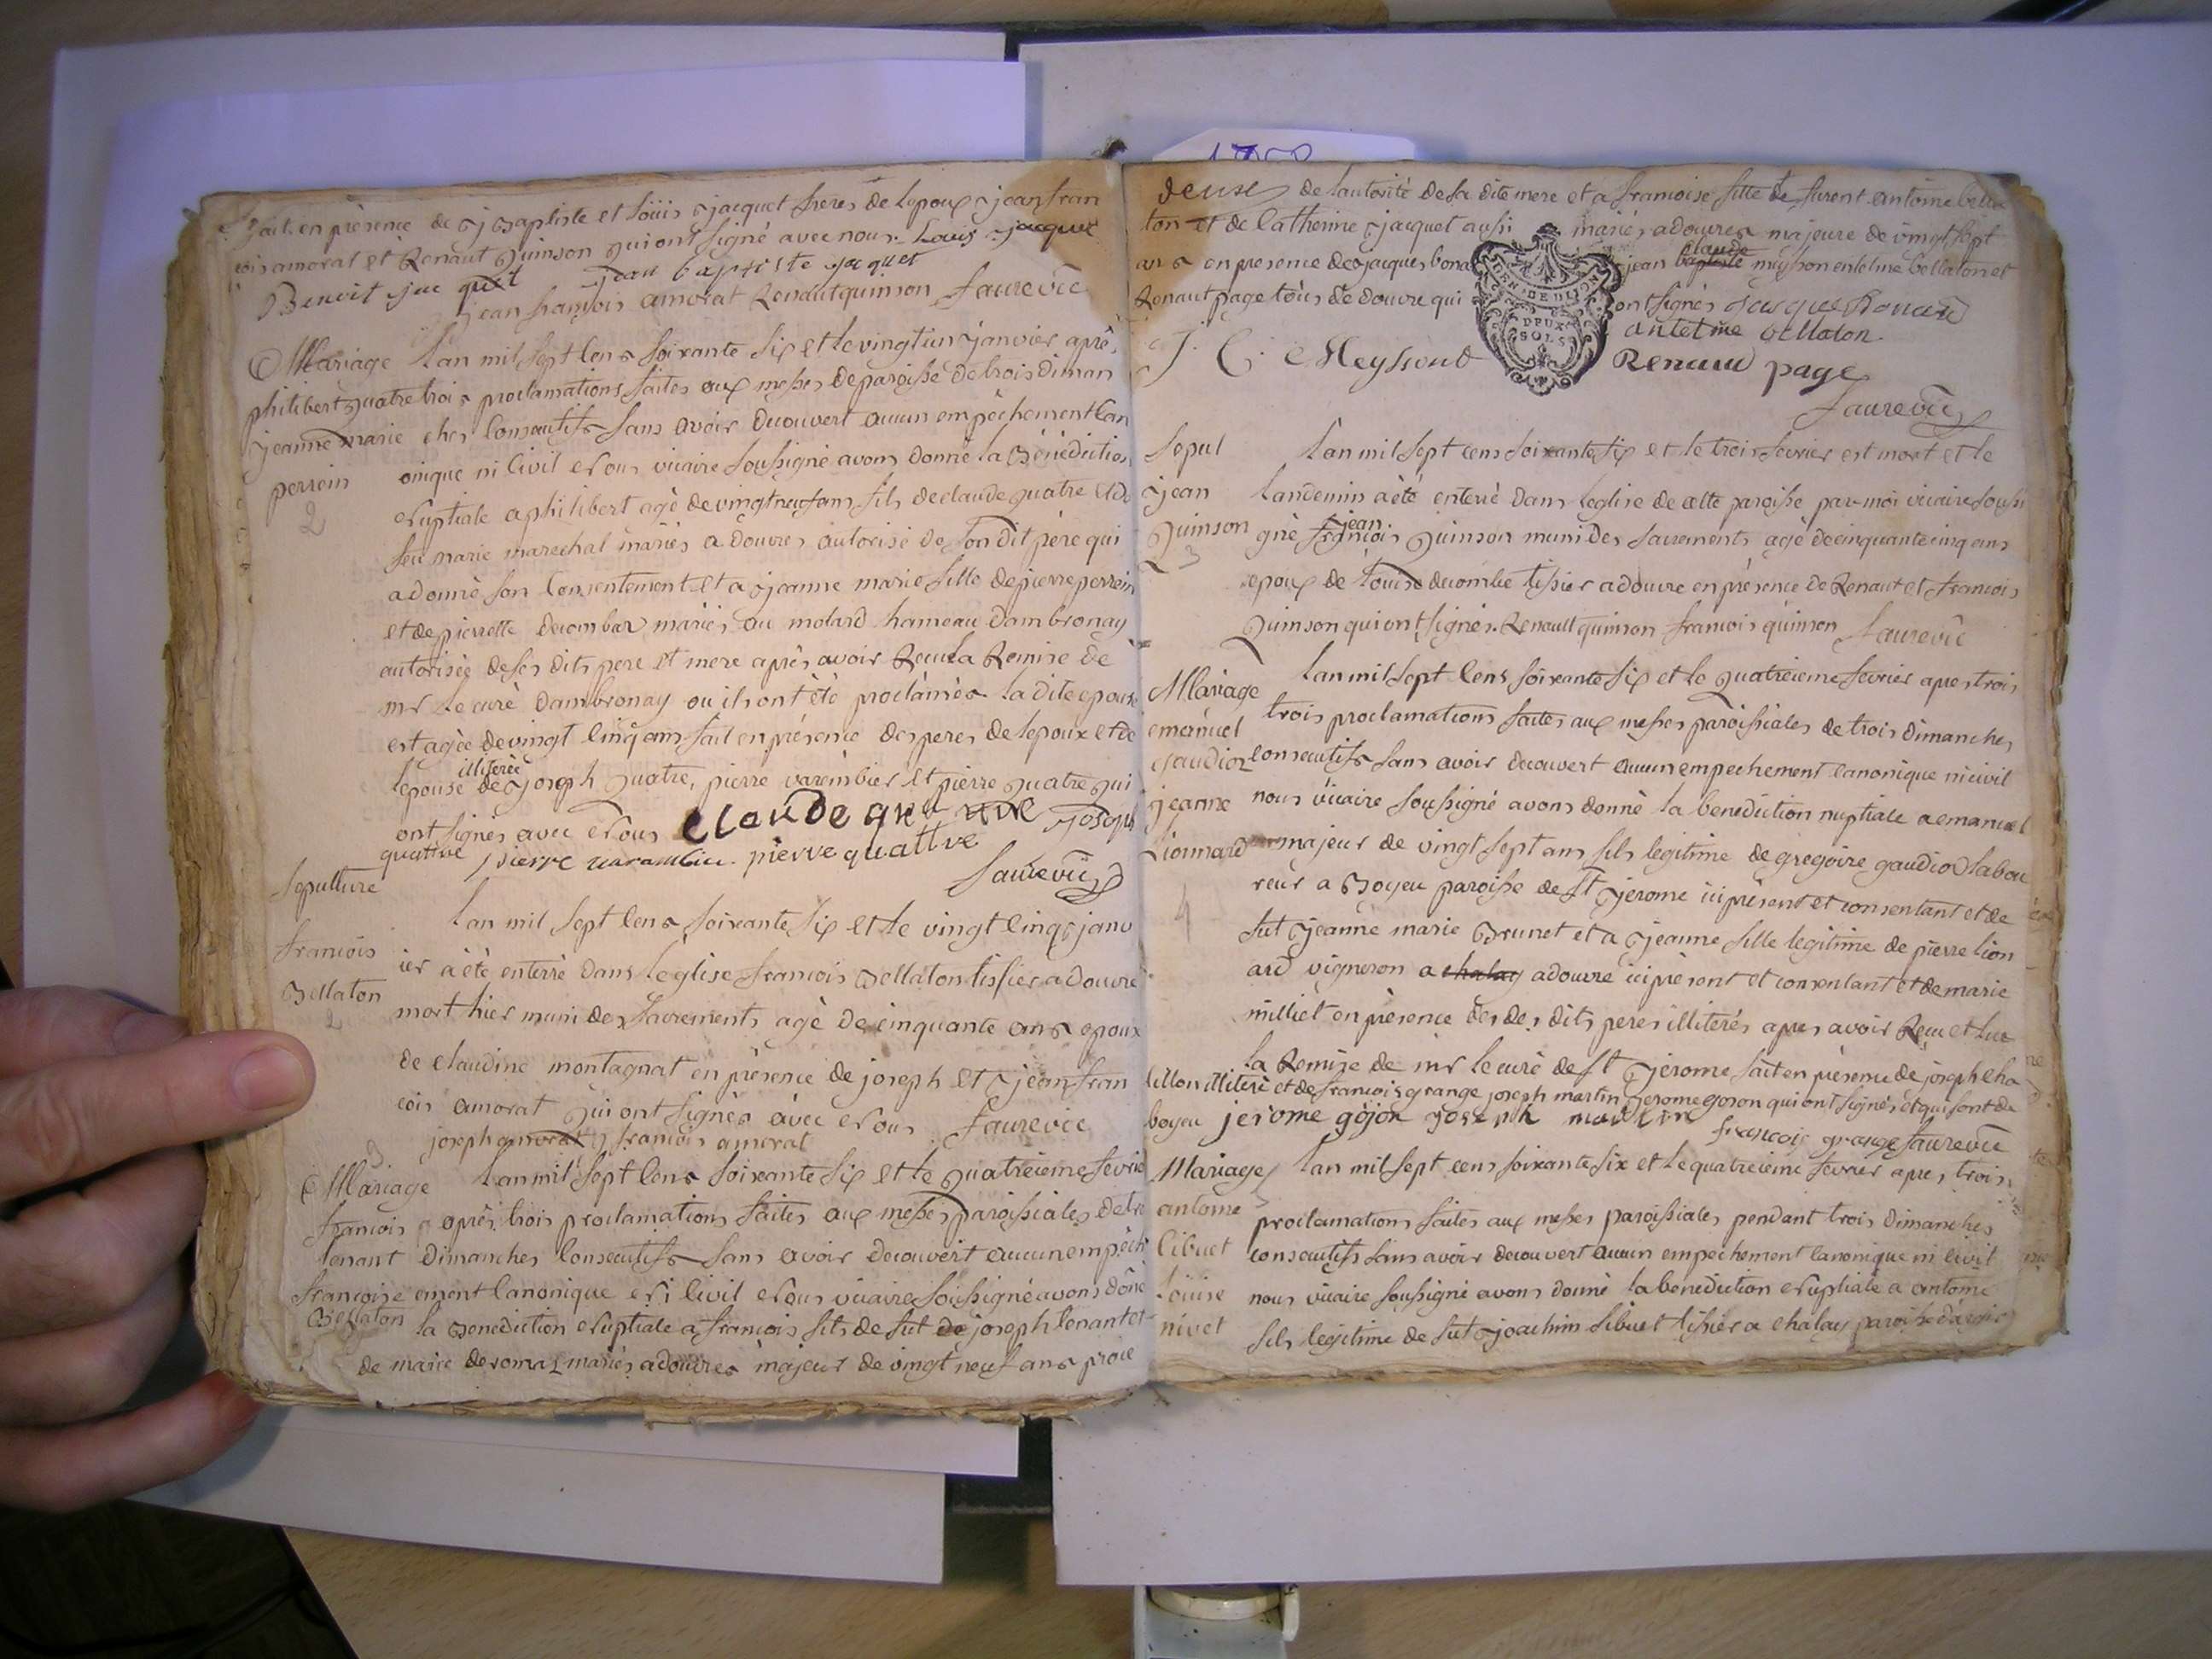 1758
fait en présence de j Baptiste et loüis jacquet freres de lepoux jean fran
cois amorat et Renaut Quinson qui ont signé avec nous. Louis jacquet
Benoit jacquet jean baptiste jacquet
jean françois amorat Renaut quinson faure vic
Mariage Lan mil sept cens soixante six et le vingt un janvier aprè
philibert quatre trois proclamations faites aux messes de paroisse de trois diman
jeanne marie ches consecutifs sans avoir decouvert aucun empêchement can
perrein onique ni civil nous vicaire soussigné avons donné la Bénédiction
2 nuptiale a philibert agé de vingt neuf ans fils de claude quatre et de
feu marie marechal mariés a douvres autorisé de son dit père qui
a donné son consentement et a jeanne marie fille de pierre perrein
et de pierrette decombar mariés au molard hameau dambronay
autorisée de ses dits pere et mere aprés avoir Recu la Remise de
mr le curé dambronay ou ils ont été proclamés la dite epouse
est agée de vingt cinq ans fait en présence des peres de lepoux et de
illiterée
lepouse de joseph quatre, pierre varembier et pierre quatre qui
ont signés avec nous claude quatre joseph
quattre pierre varambier pierre quattre
faure vic
sepulture
Lan mil sept cens soixante six et le vingt cinq janv
francois ier a été enterré dans leglise francois Bellaton tissier a douvre
Bellaton mort hier muni des sacrements agé de cinquante ans epoux
2
de claudine montagnat en présence de joseph et jean fran
cois amorat qui ont signés avec nous faure vic
joseph amorat j francois amorat
3
Mariage Lan mil sept cens soixante six et le quatreieme fevrie
francois après trois proclamations faites aux messes paroissiales de tro
tenant dimanches consecutifs sans avoir decouvert aucun empêch
françoise ement canonique ni civil nous vicaire soussigné avons doné
Bellaton la Benediction nuptiale a francois fils de fut de joseph tenant et
de marie deromas mariés a douvres majeur de vingt neuf ans proce
deuse de lautorité de sa dite mere et a francoise fille de furent antoine bella
ton et de Catherine jacquet aussi mariés a douvres majeure de vingt sept
claude
ans en presence de jacques bona jean baptiste meysson entelme bellaton et
Renaut page tous de douvre qui ont signés jacque Bonard
antelme bellaton
J. C. Meyssond Renaud page
GEN. DE DIJON
DEUX
SOLS
faure vic
sepul Lan mil sept cens soixante six et le trois fevrier est mort et le
jean landemin a été enterré dans leglise de cette paroisse par moi vicaire soussi
jean
Quinson gné francois Quinson muni des sacrements agé de cinquante cinq ans
3
epoux de louise decombe tissier a douvre en présence de Renaut et francois
Quinson qui ont signés. Renault quinson francois quinson faure vic
Lan mil sept cens soixante six et le quatreieme fevrier apres trois
Mariage
trois proclamations faites aux messes paroissiales de trois dimanches
emanuel
gaudioz consecutifs sans avoir decouvert aucun empechement canonique ni civil
jeanne nous vicaire soussigné avons donné la benediction nuptiale a emanuel
Lionnard majeur de vingt sept ans fils legitime de gregoire gaudioz labou
reur a Boyeu paroisse de st jerome ici présent et consentant et de
4
fut jeanne marie Brunet et a jeanne fille legitime de pierre lion
ard vigneron a chalay a douvre ici présent et consentant et de marie
milliet en présence des des dits peres illiterés apres avoir Recu et lue
la Remise de mr le curé de st jerome fait en présence de joseph cha
tillon illiteré et de francois grange joseph martin jerome gojon qui ont signés et qui sont de
boyeu jerome gojon joseph martin francois grange faure vic
Mariage Lan mil sept cens soixante six et le quatreieme fevrier apres trois
5
antoine proclamations faites aux messes paroissiales pendant trois dimanches
libuet consecutifs sans avoir decouvert aucun empechement canonique ni civil
louise nous vicaire soussigné avons donné la benediction nuptiale a antoine
nivet fils legitime de fut joachim libuet tissier a chalay paroisse